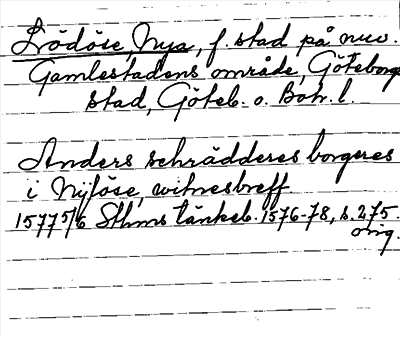 Lödöse, Nya, f. stad på nuv.
Gamlestadens område, Göteborgs
stad, Göteb. o. Boh. l.
Anders schrädderes borgeres
i Nylöse, witnesbreff
1577 5/6 Sthms tänkeb. 1576-78, s. 275.
orig.